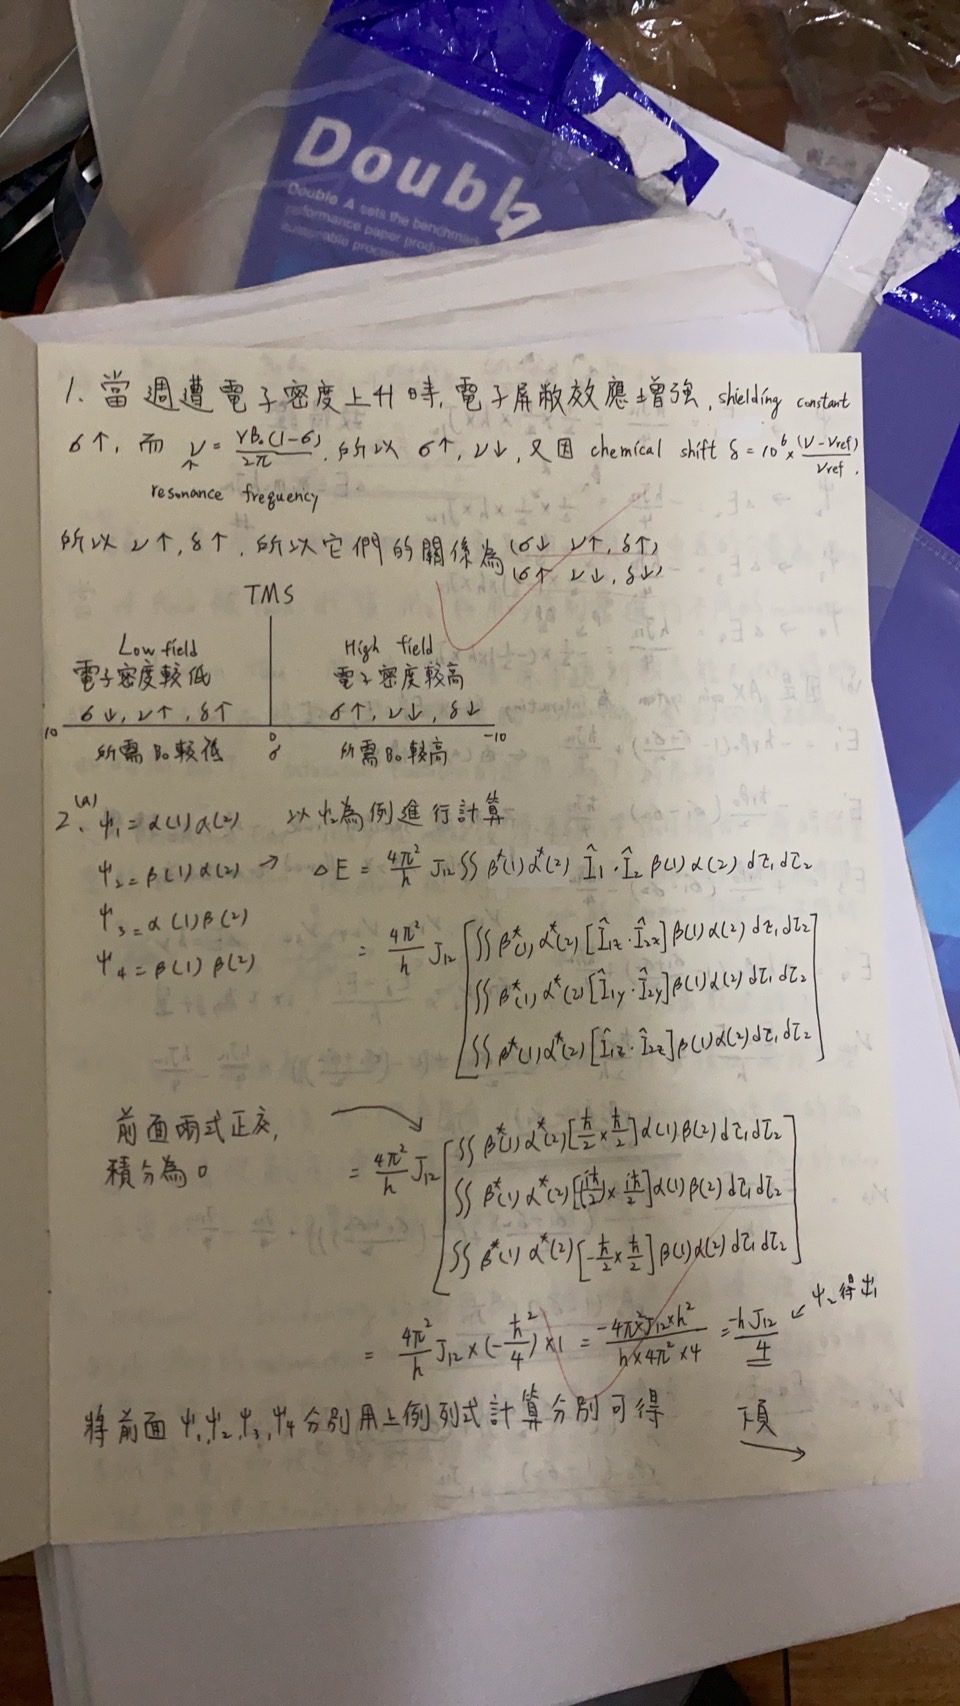 Double
Double A sets the benchmark
performance paper produ
sustainable proces
1. 當週遭電子密度上升時,電子屏敝效應增強, shielding constant
σ↑, 而 ν = γB₀(1-σ)/2π, 所以 σ↑, ν↓, 又因 chemical shift δ = 10⁶ × (ν - νref)/νref.
↑
resonance frequency
所以 ν↑, δ↑, 所以它們的關係為 (σ↓ ν↑, δ↑)
(σ↑ ν↓, δ↓)
TMS
Low field
電子密度較低
σ↓, ν↑, δ↑
High field
電子密度較高
σ↑, ν↓, δ↓
10 0 -10
δ
所需 B₀ 較低
所需 B₀ 較高
2. (a) ψ₁ = α(1) α(2) 以 ψ₂ 為例進行計算
ψ₂ = β(1) α(2) → ΔE = 4π²/h J₁₂ ∬ β*(1) α*(2) Î₁ · Î₂ β(1) α(2) dτ₁ dτ₂
ψ₃ = α(1) β(2)
ψ₄ = β(1) β(2)
= 4π²/h J₁₂ [∬ β*(1) α*(2) [Î₁z · Î₂z] β(1) α(2) dτ₁ dτ₂
∬ β*(1) α*(2) [Î₁y · Î₂y] β(1) α(2) dτ₁ dτ₂
∬ β*(1) α*(2) [Î₁z · Î₂z] β(1) α(2) dτ₁ dτ₂]
前面兩式正交,
積分為 0
= 4π²/h J₁₂ [∬ β*(1) α*(2) [ħ/2 × ħ/2] α(1) β(2) dτ₁ dτ₂
∬ β*(1) α*(2) [(iħ/2) × iħ/2] α(1) β(2) dτ₁ dτ₂
∬ β*(1) α*(2) [-ħ/2 × ħ/2] β(1) α(2) dτ₁ dτ₂]
= 4π²/h J₁₂ × (-ħ²/4) × 1 = -4π² × J₁₂ × h²/h × 4π² × 4 = -hJ₁₂/4 ↙ ψ₂ 得出
將前面 ψ₁, ψ₂, ψ₃, ψ₄ 分別用上例列式計算分別可得 下頁 →